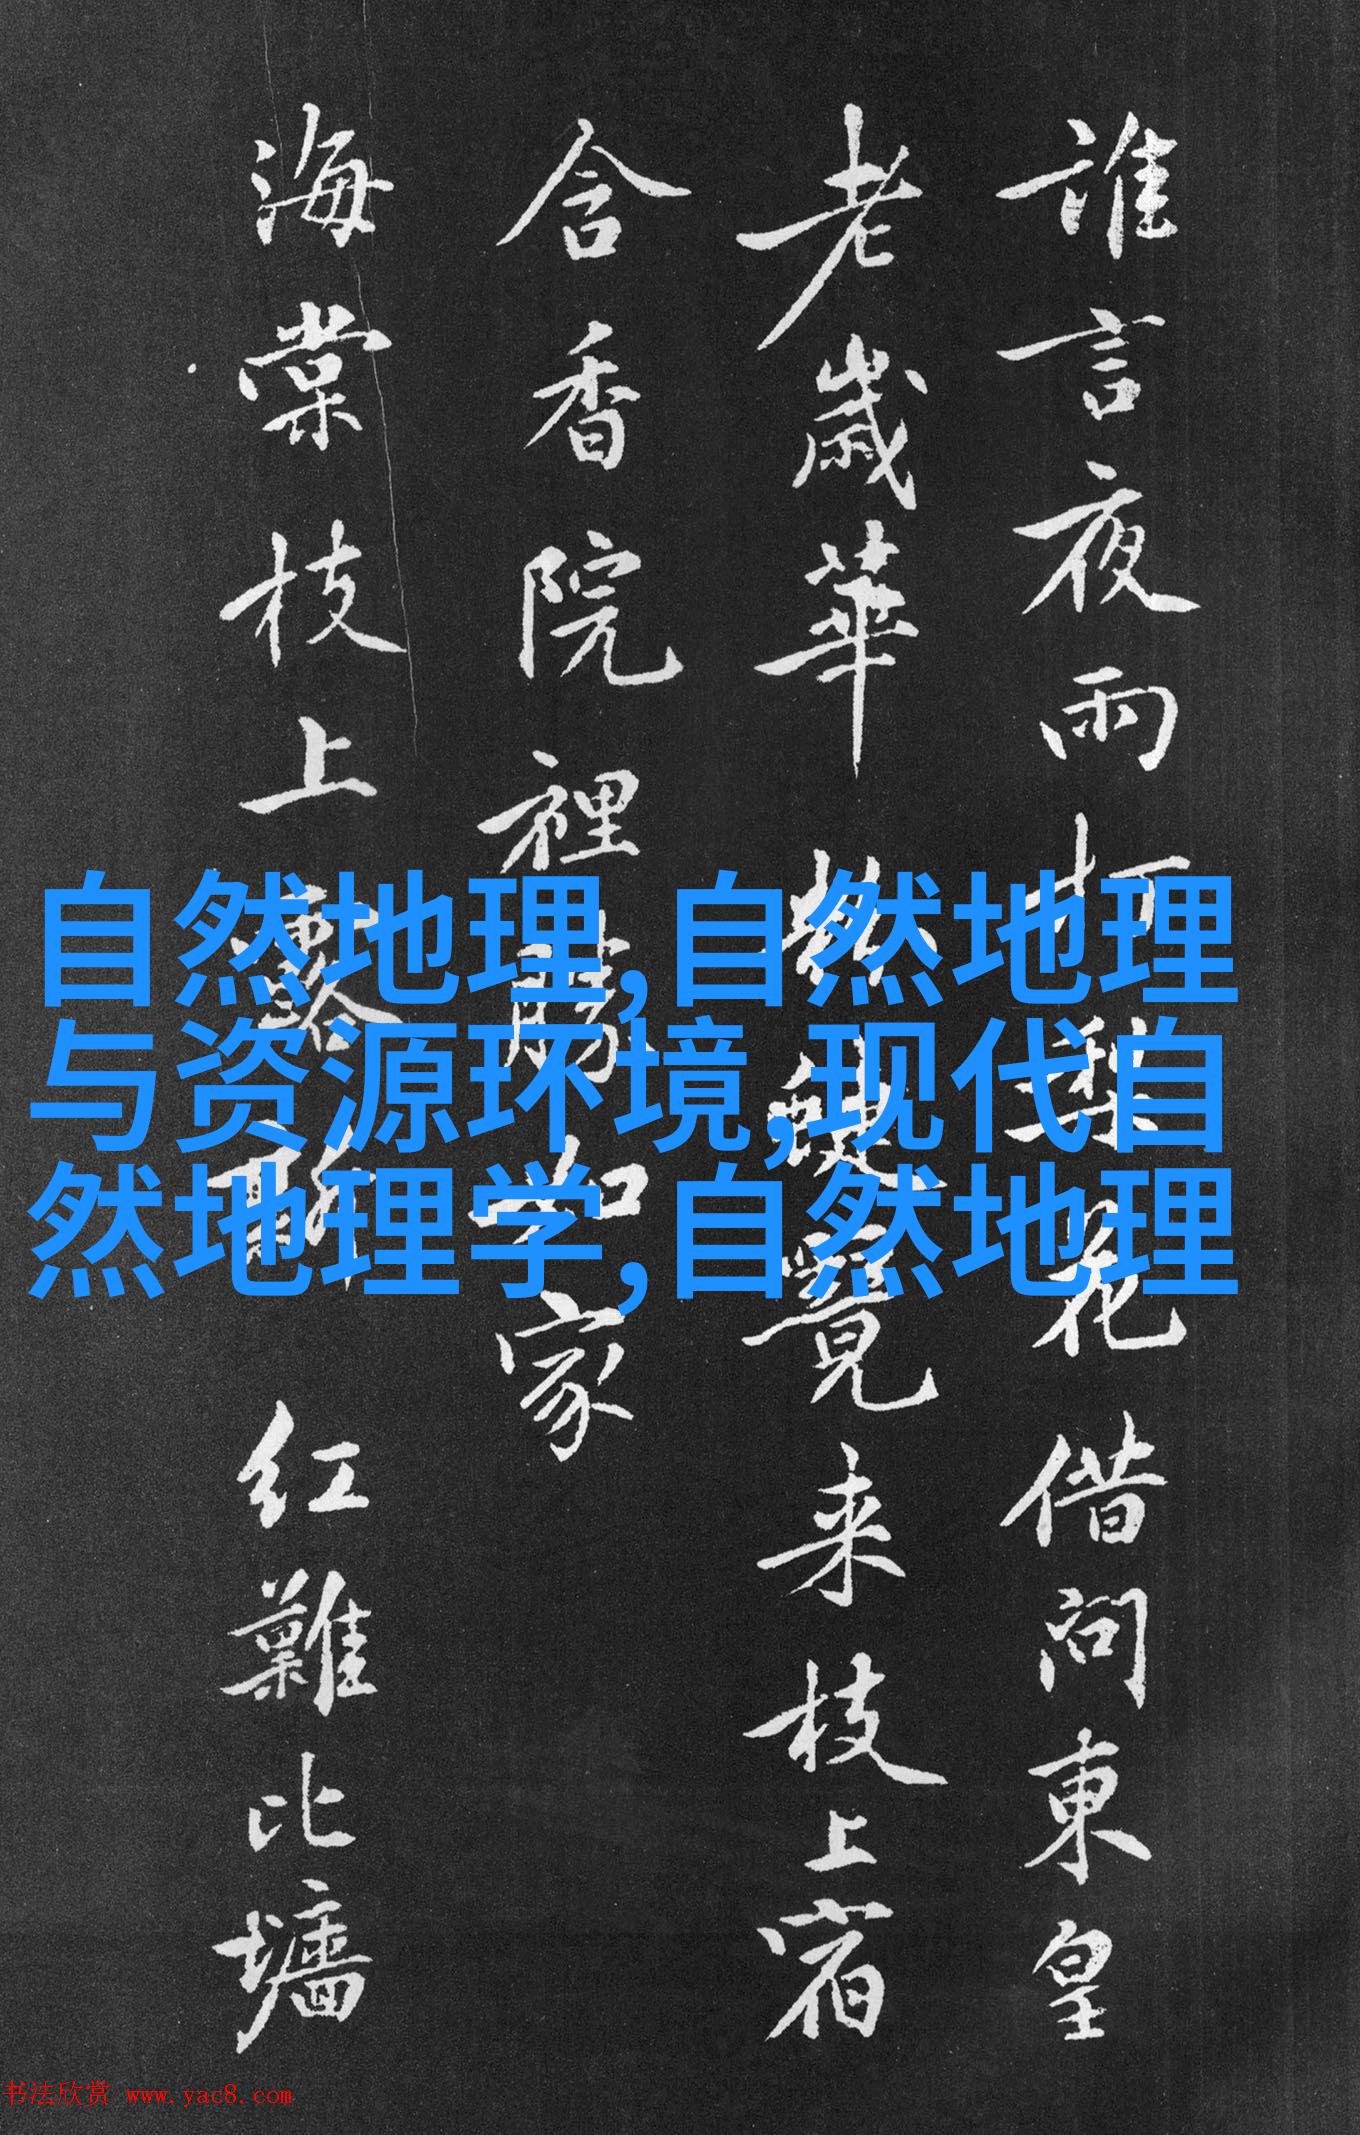 誰言夜雨打梨花借問東皇
老歲華 蝶覺来枝上宿
含香院裡勝如家
海棠枝上露 紅難比墻
自然地理,自然地理
与资源环境,现代自
然地理学,自然地理
书法欣赏 www.yac8.com